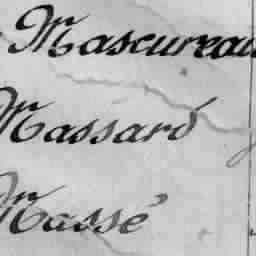 Mascureau
Massard
Massé